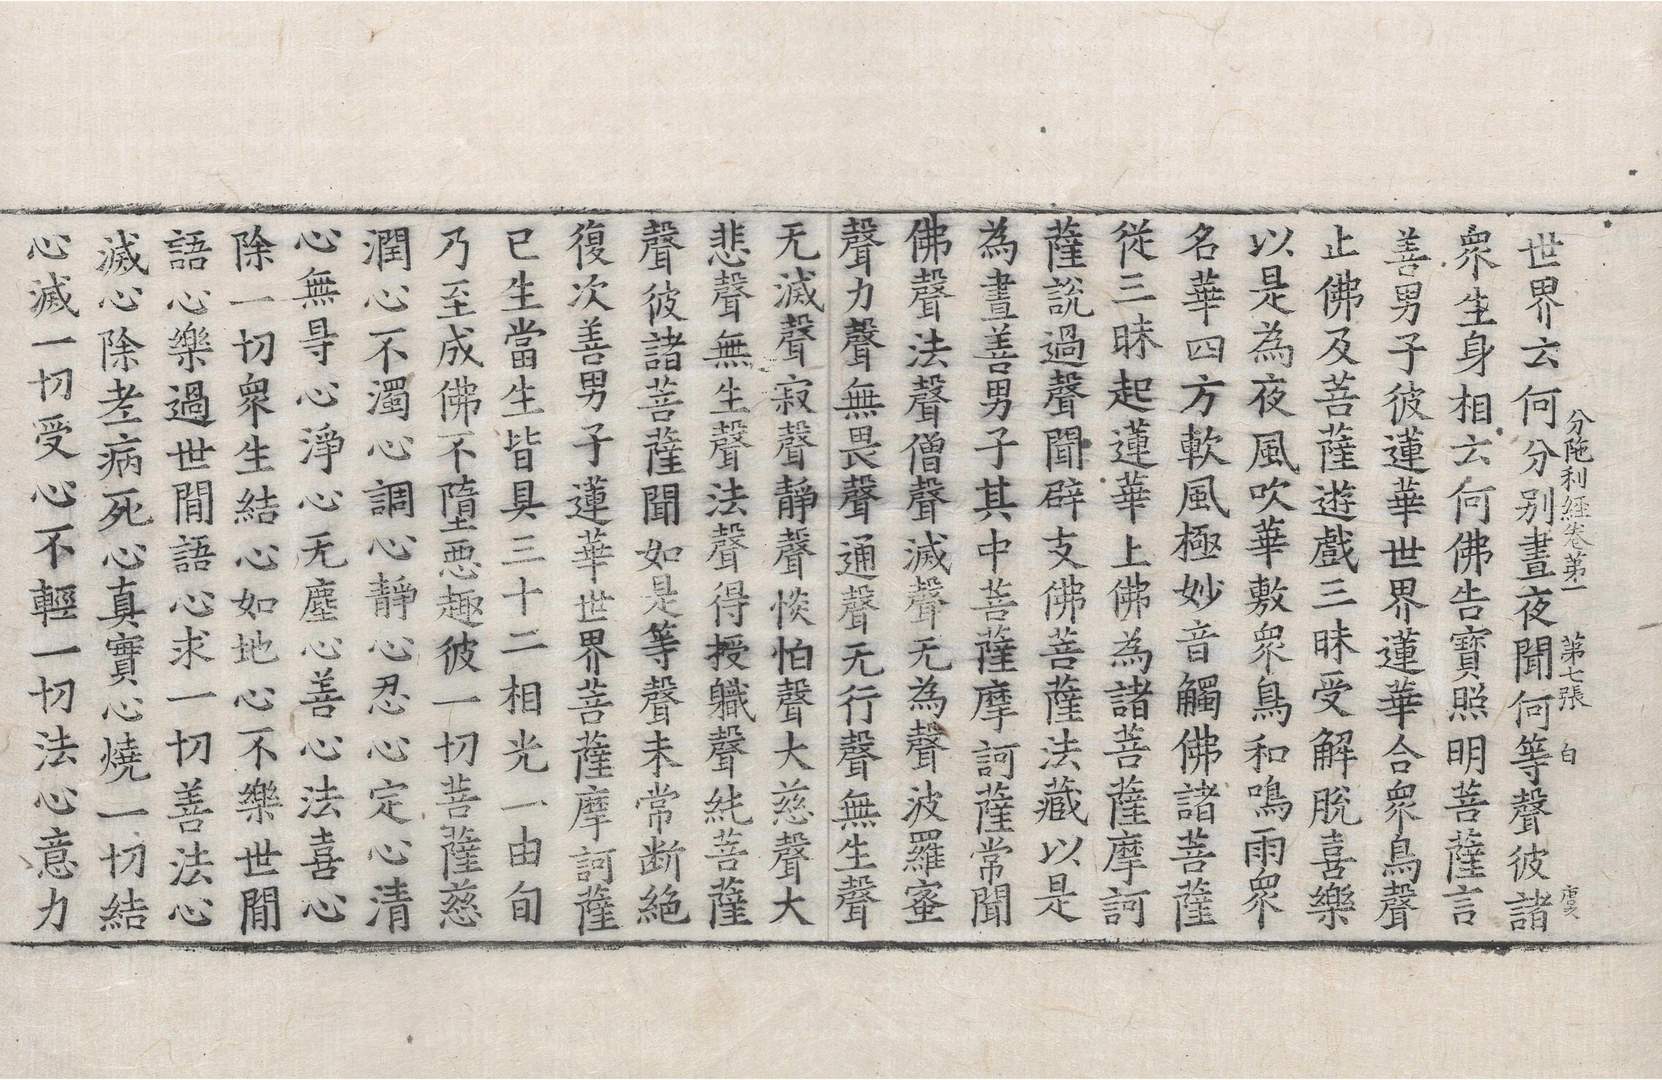 分陁利經卷第一　第七張　白　虞
世界云何分別晝夜聞何等聲彼諸
衆生身相云何佛告寶照明菩薩言
善男子彼蓮華世界蓮華合衆鳥聲
止佛及菩薩遊戲三昧受解脫喜樂
以是為夜風吹華敷衆鳥和鳴雨衆
名華四方軟風極妙音觸佛諸菩薩
從三昧起蓮華上佛為諸菩薩摩訶
薩說過聲聞辟支佛菩薩法藏以是
為晝善男子其中菩薩摩訶薩常聞
佛聲法聲僧聲滅聲无為聲波羅蜜
聲力聲無畏聲通聲无行聲無生聲
无滅聲寂聲靜聲惔怕聲大慈聲大
悲聲無生聲法聲得授軄聲純菩薩
聲彼諸菩薩聞如是等聲未常断絕
復次善男子蓮華世界菩薩摩訶薩
已生當生皆具三十二相光一由旬
乃至成佛不墮惡趣彼一切菩薩慈
潤心不濁心調心靜心忍心定心清
心無㝵心淨心无塵心善心法喜心
除一切衆生結心如地心不樂世閒
語心樂過世閒語心求一切善法心
滅心除老病死心真寶心燒一切結
心滅一切受心不輕一切法心意力